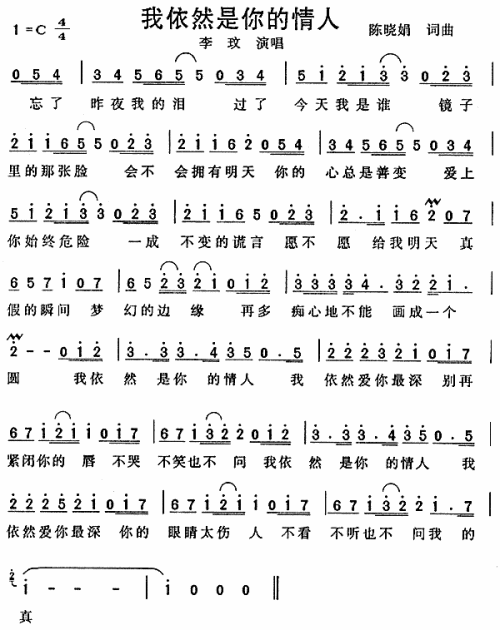 我依然是你的情人
1=C 4/4 李 玟 演唱 陈晓娟 词曲
0 5 4 | 3 4 5 6 5 5 0 5 4 | 5 i 2 i 3 3 0 2 3 |
忘了 昨夜我的泪 过了 今天我是谁 镜子
2 i i 6 5 5 0 2 3 | 2 i i 6 2 0 5 4 | 3 4 5 6 5 5 0 3 4 |
里的那张脸 会不 会拥有明天 你的 心总是善变 爱上
5 i 2 i 3 3 0 2 3 | 2 i i 6 5 0 2 3 | 2 . i i 6 2 0 7 |
你始终危险 一成 不变的谎言 愿不 愿给我明天 真
6 5 7 i 0 7 | 6 5 2 3 2 i 0 i 2 | 3 3 3 3 4 . 3 2 2 i . |
假的瞬间 梦 幻的边 缘 再多 痴心地不能 画成一个
2 - - 0 i 2 | 3 . 3 3 . 4 3 5 0 . 5 | 2 2 2 3 2 i 0 i 7 |
圆 我依 然 是你 的情人 我 依然爱你最深 别再
6 7 i 2 i i 0 i 7 | 6 7 i 3 2 2 0 i 2 | 3 . 3 3 . 4 3 5 0 . 5 |
紧闭你的 唇 不哭 不笑也不 问我依 然 是你 的情人 我
2 2 2 5 2 i 0 i 7 | 6 7 i 2 i i 0 i 7 | 6 7 i 3 2 2 i . 7 |
依然爱你最深 你的 眼睛太伤 人 不看 不听也不 问我的
2 i - - - | i 0 0 0 ‖
真